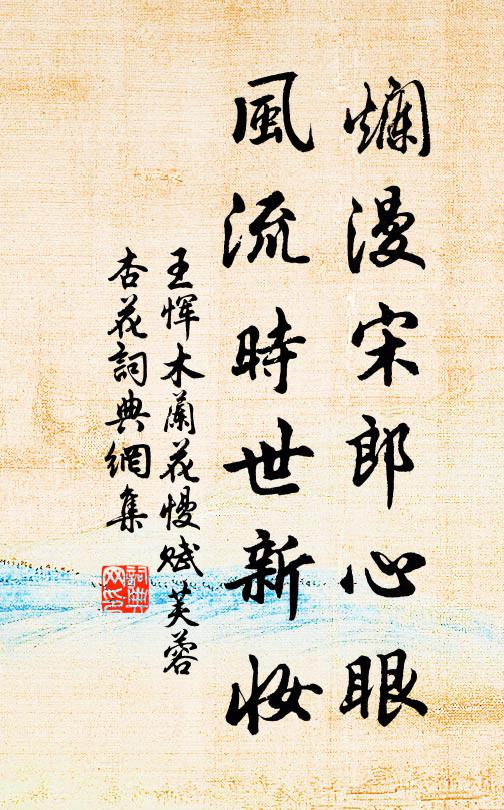 爛漫宋郎心眼
風流時世新妝
王惲木蘭花慢賦芙蓉
杏花詞典網集